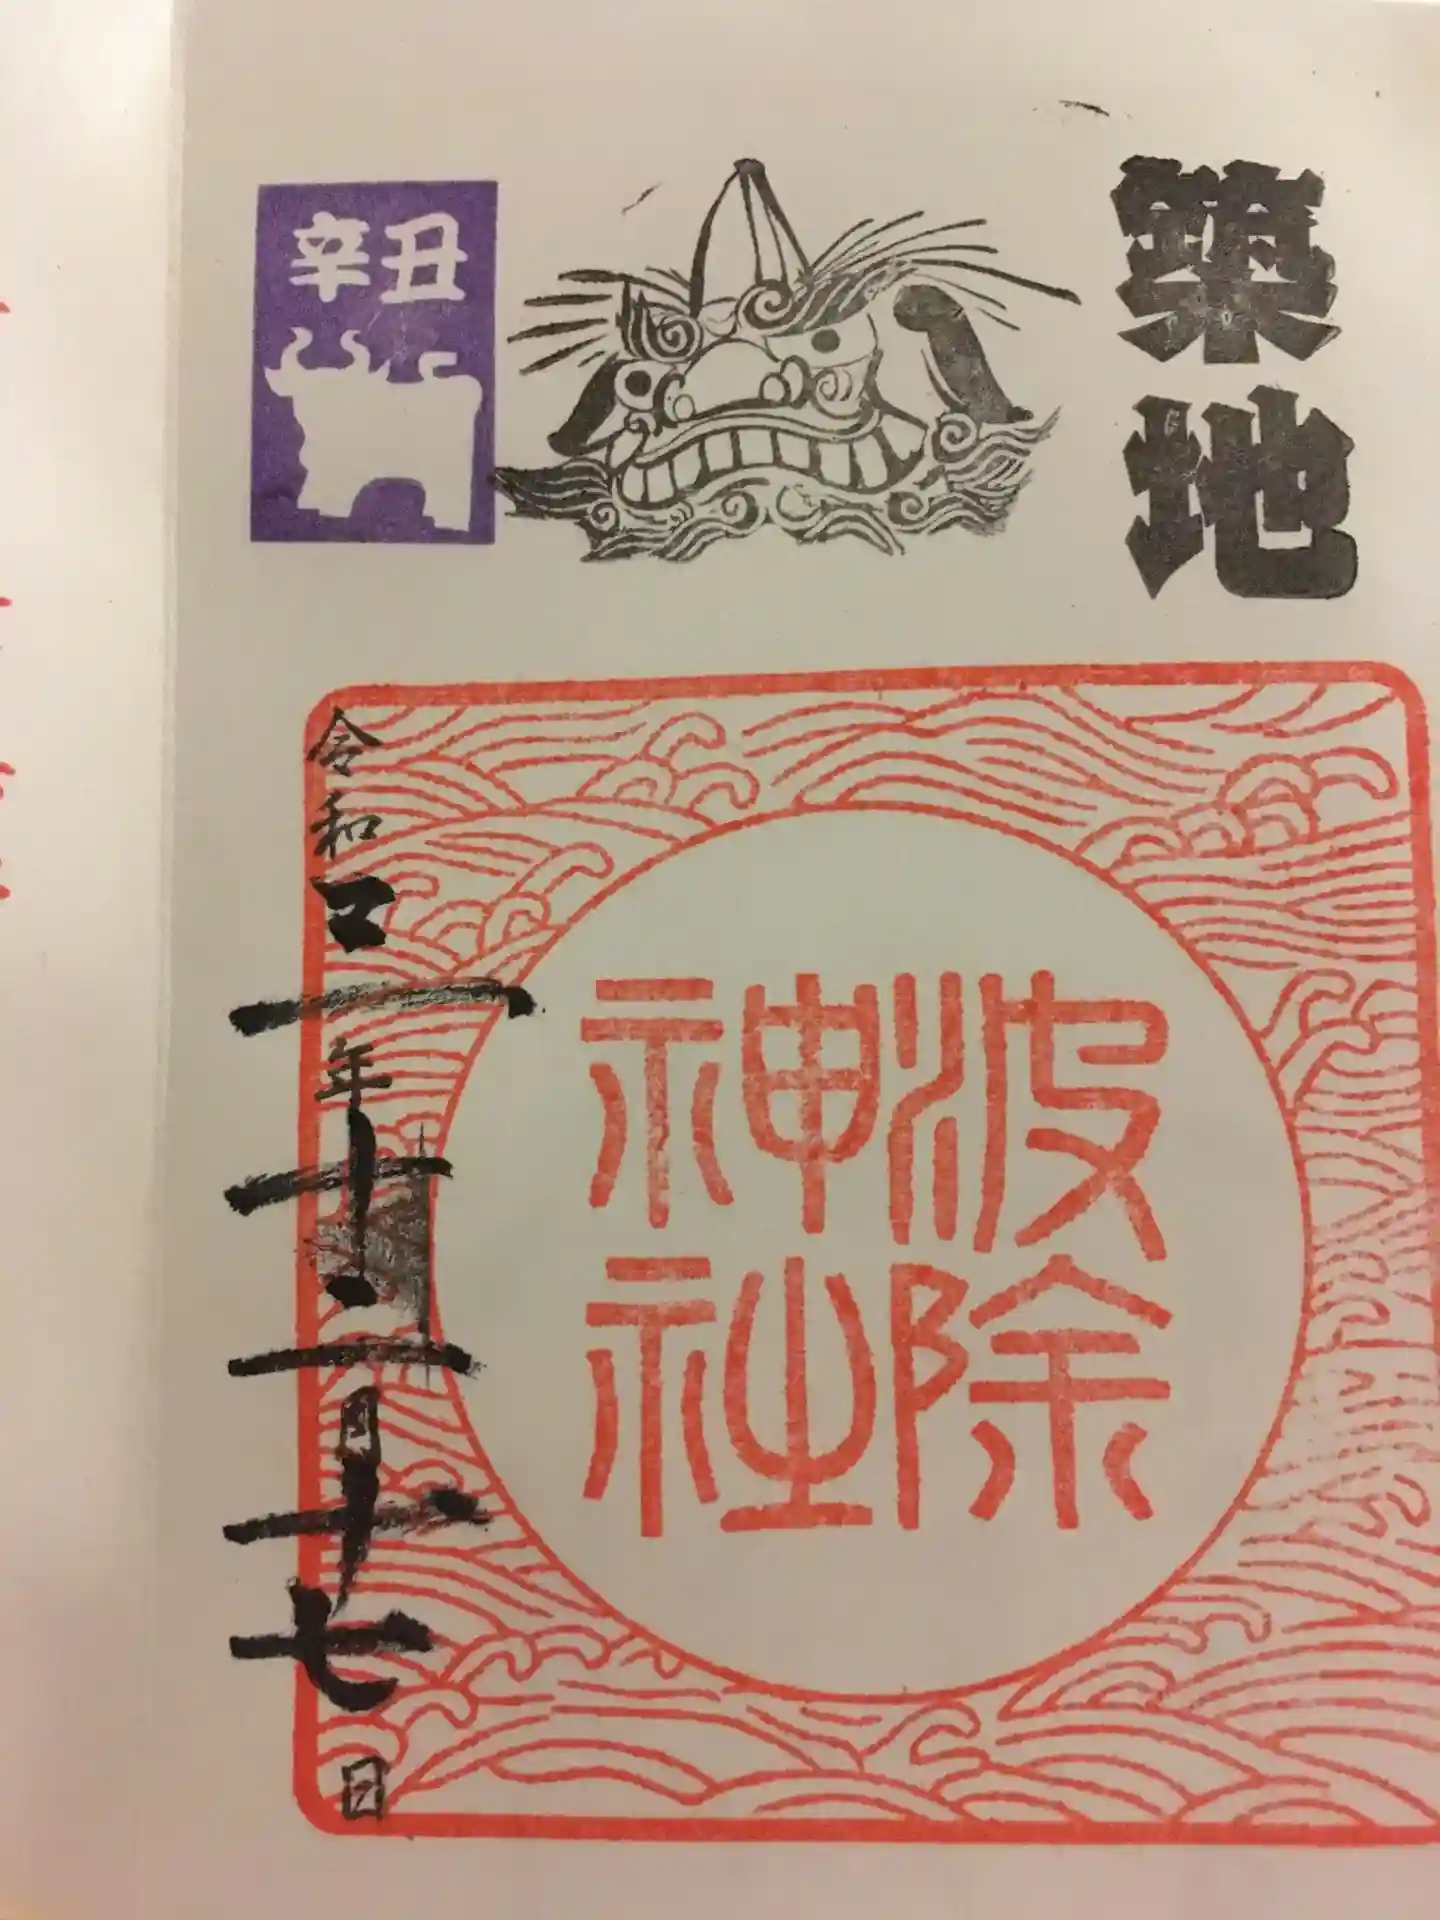 築地
辛丑
波除
神社
令和三年十二月十七日